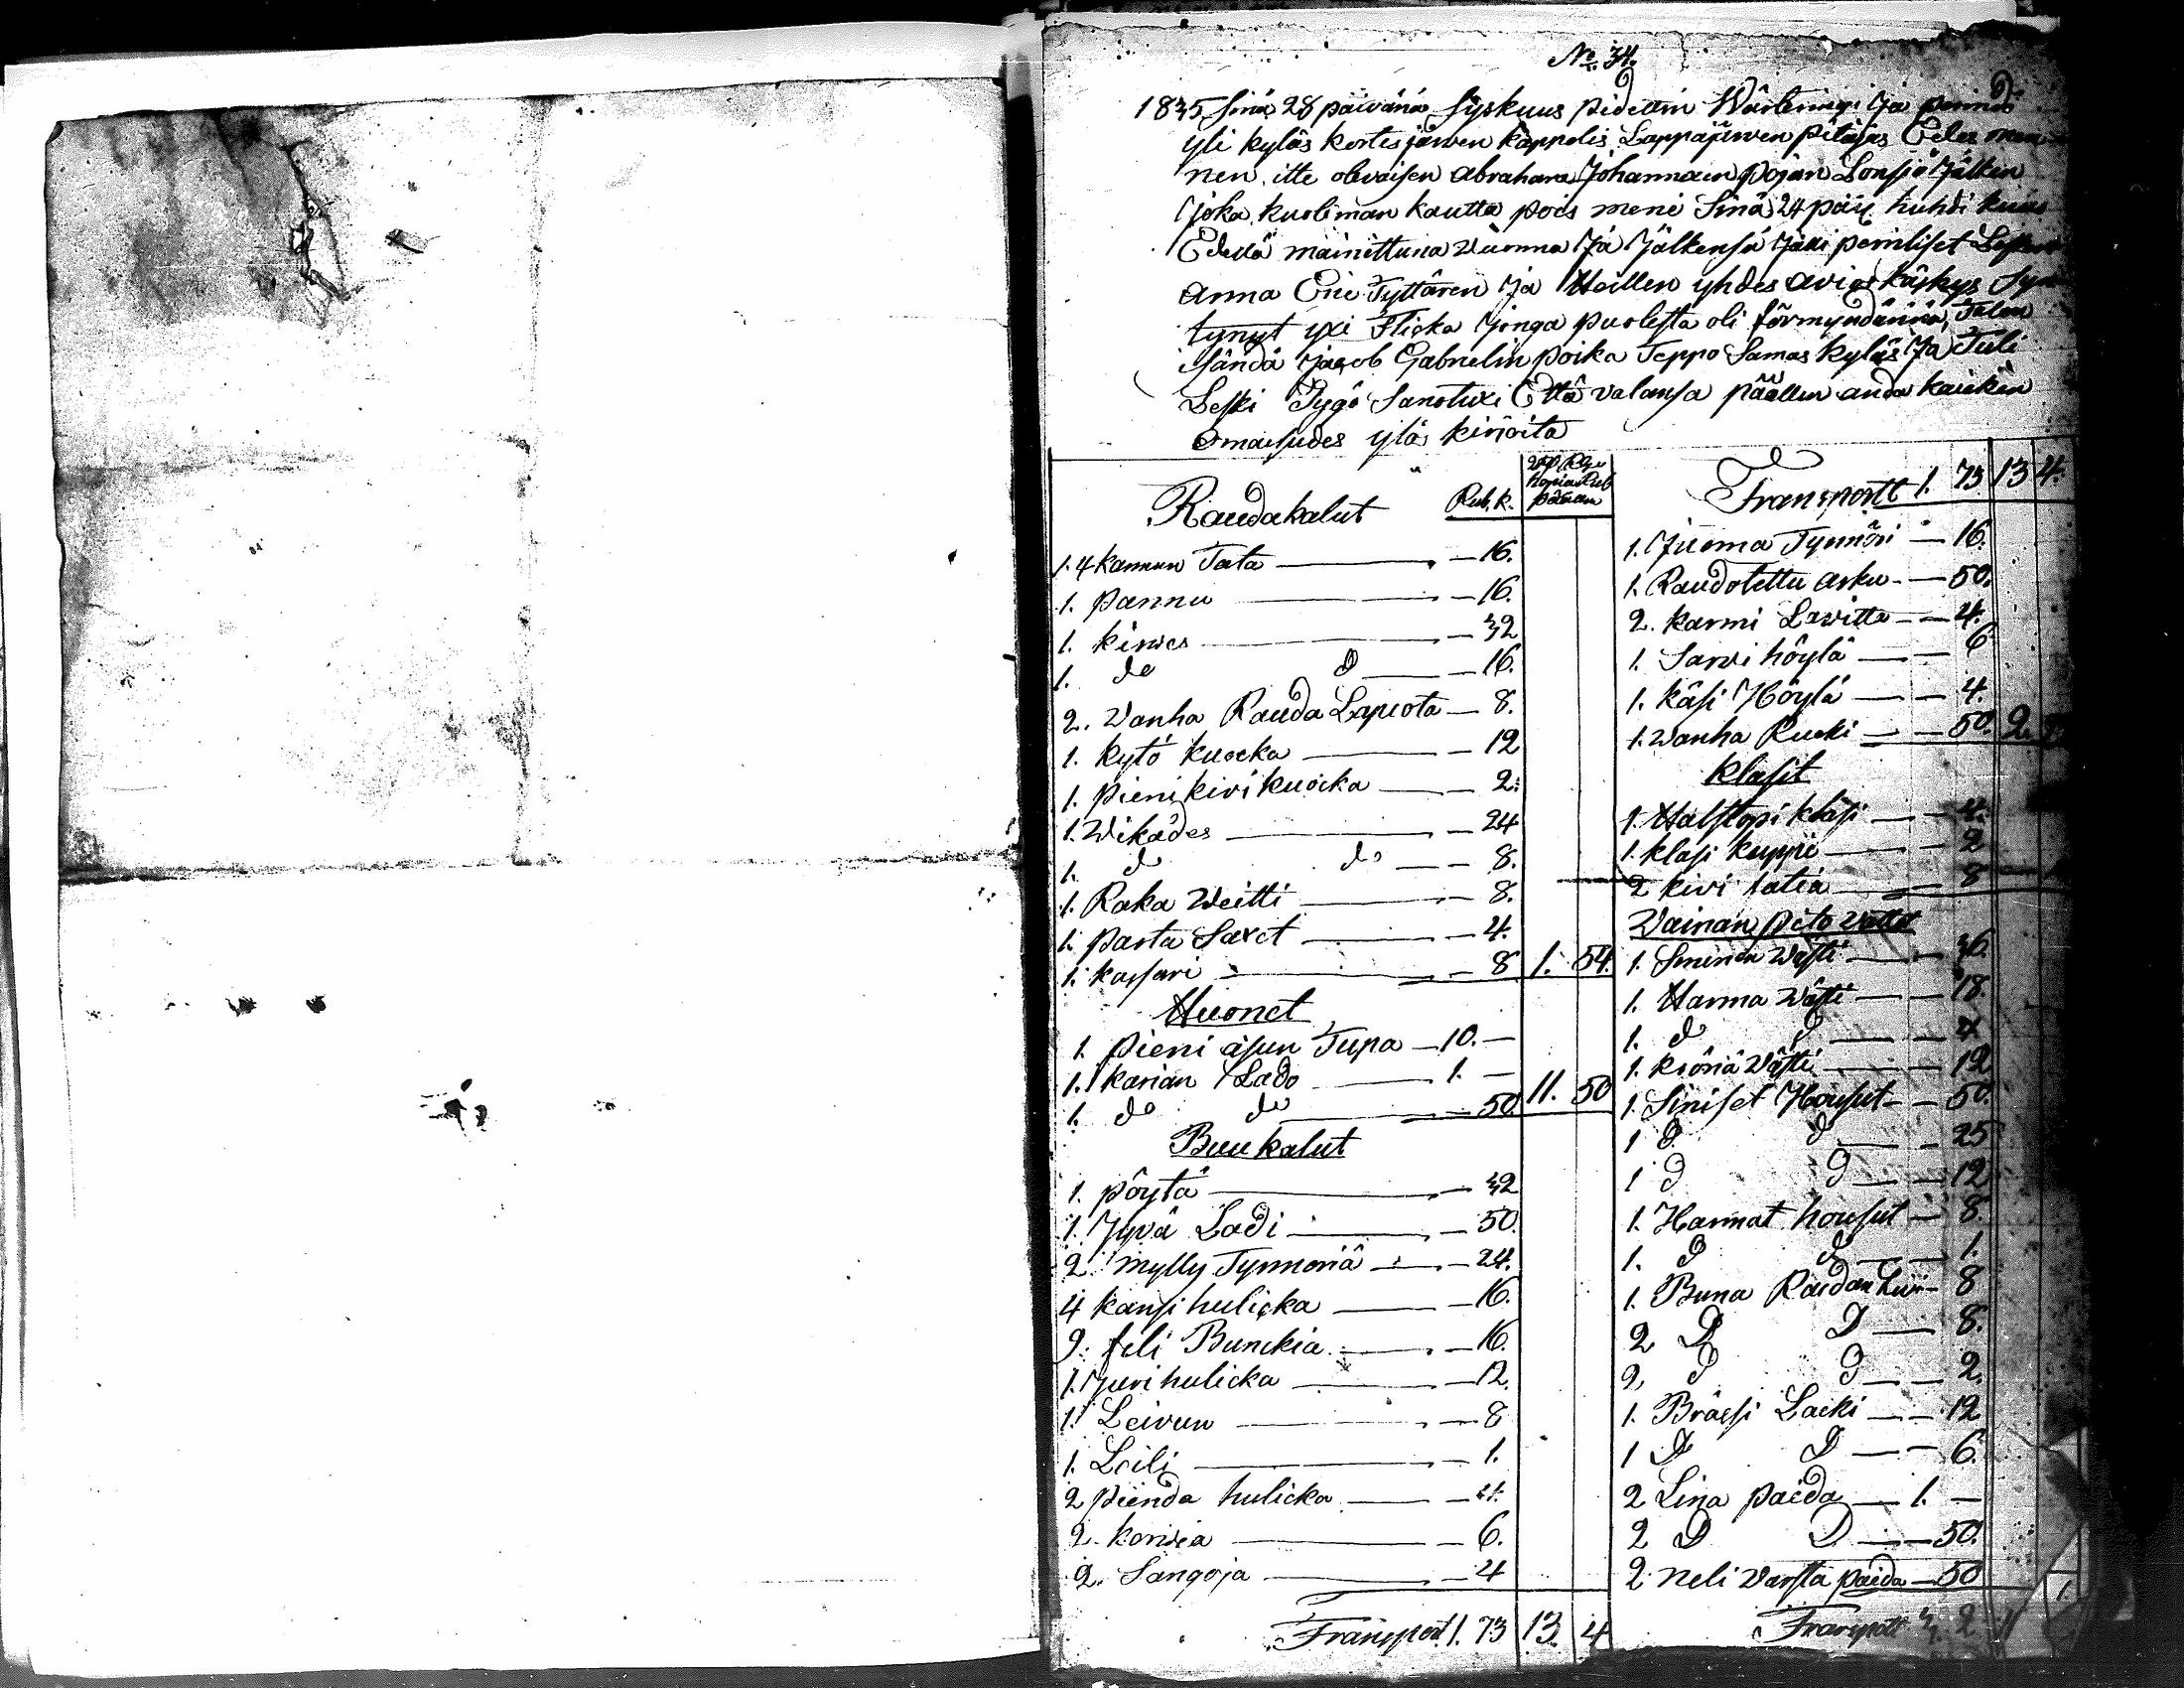 No 34.
1835 Sinä 28 päivänä Syskuus pidettin Wärteringi Ja
yli kyläs kortesjärwen kappelis Lappajärwen pitäjäs Edes men
nen itte olevaisen Abraham Johannexen pojan Jälkin
Joka kuoleman kautta pois meni Sinä 24 päiv. huhdi kuus
Edellä mainittuna vuonna Ja Jälkensä Jätti perilliset Lesken
Anna Eric Tyttären Ja Heillen yhdes avio käskys Syn
tynyt yxi Flicka Jonga puolesta oli förmyndärinä, Talon
isändä Jacob Gabrielin poika Teppo Samas kyläs Ja Tuli
Leski Tygö Sanotuxi Että valansa päällen anda kaickin
Omaisudes ylös kirjoita
Raudakalut Rub. k.
1. 4 kannun Pata 16.
1. pannu 16.
1. kirwes 32
1. do D 16.
2. Vanha Rauda Lapiota 8.
1. kytö kuocka 12
1. pieni kivi kuocka 2.
1. Wikades 24
1. do do 8.
1. Raka Weitti 8.
1. parta Saxet 4.
1. kassari 8 1. 54.
Huonet
1. pieni asun Tupa 10. —
1. karian Lado 1. —
1. do do 50 11. 50
Buu kalut
1. pöytä 32
1. Jyvä Ladi 50.
2. mylly Tynnoriä 24.
4 kansi hulicka 16.
9. fili Bunckia 16.
1. Juri hulicka 12.
1. Leivun 8
1. Leili 1.
2 piendä hulicka 4.
2. korwia 6.
2. Sangoja 4
Transport 1. 73 13. 4
Transportt 1. 73 13 4.
1. Juoma Tynnöri 16.
1. Raudotettu arku 50.
2. karmi Lawitta 4.
1. Sarvi höylä 6
1. käsi Höylä 4.
1. vanha Rucki 50. 2.
Klasit
1. Halstopi klasi 4.
1. klasi kuppi 2
2 kivi Fatia 8
Vainan pito
1. Sininen Wästi 36.
1. Harma Wästi 18.
1. do D 4
1. Wästi 12
1. Siniset Housut 50.
1 D D 25
1 D D 12
1. Harmat housut 8.
1. D D 1.
1. Buna Raidan 8
2 D D 8.
2. D D 2.
1. Lacki 12
1 D D 6.
2 Lina paida 1. —
2 D D 50.
2 neli Varsta paida 50
Transportt 3. 2